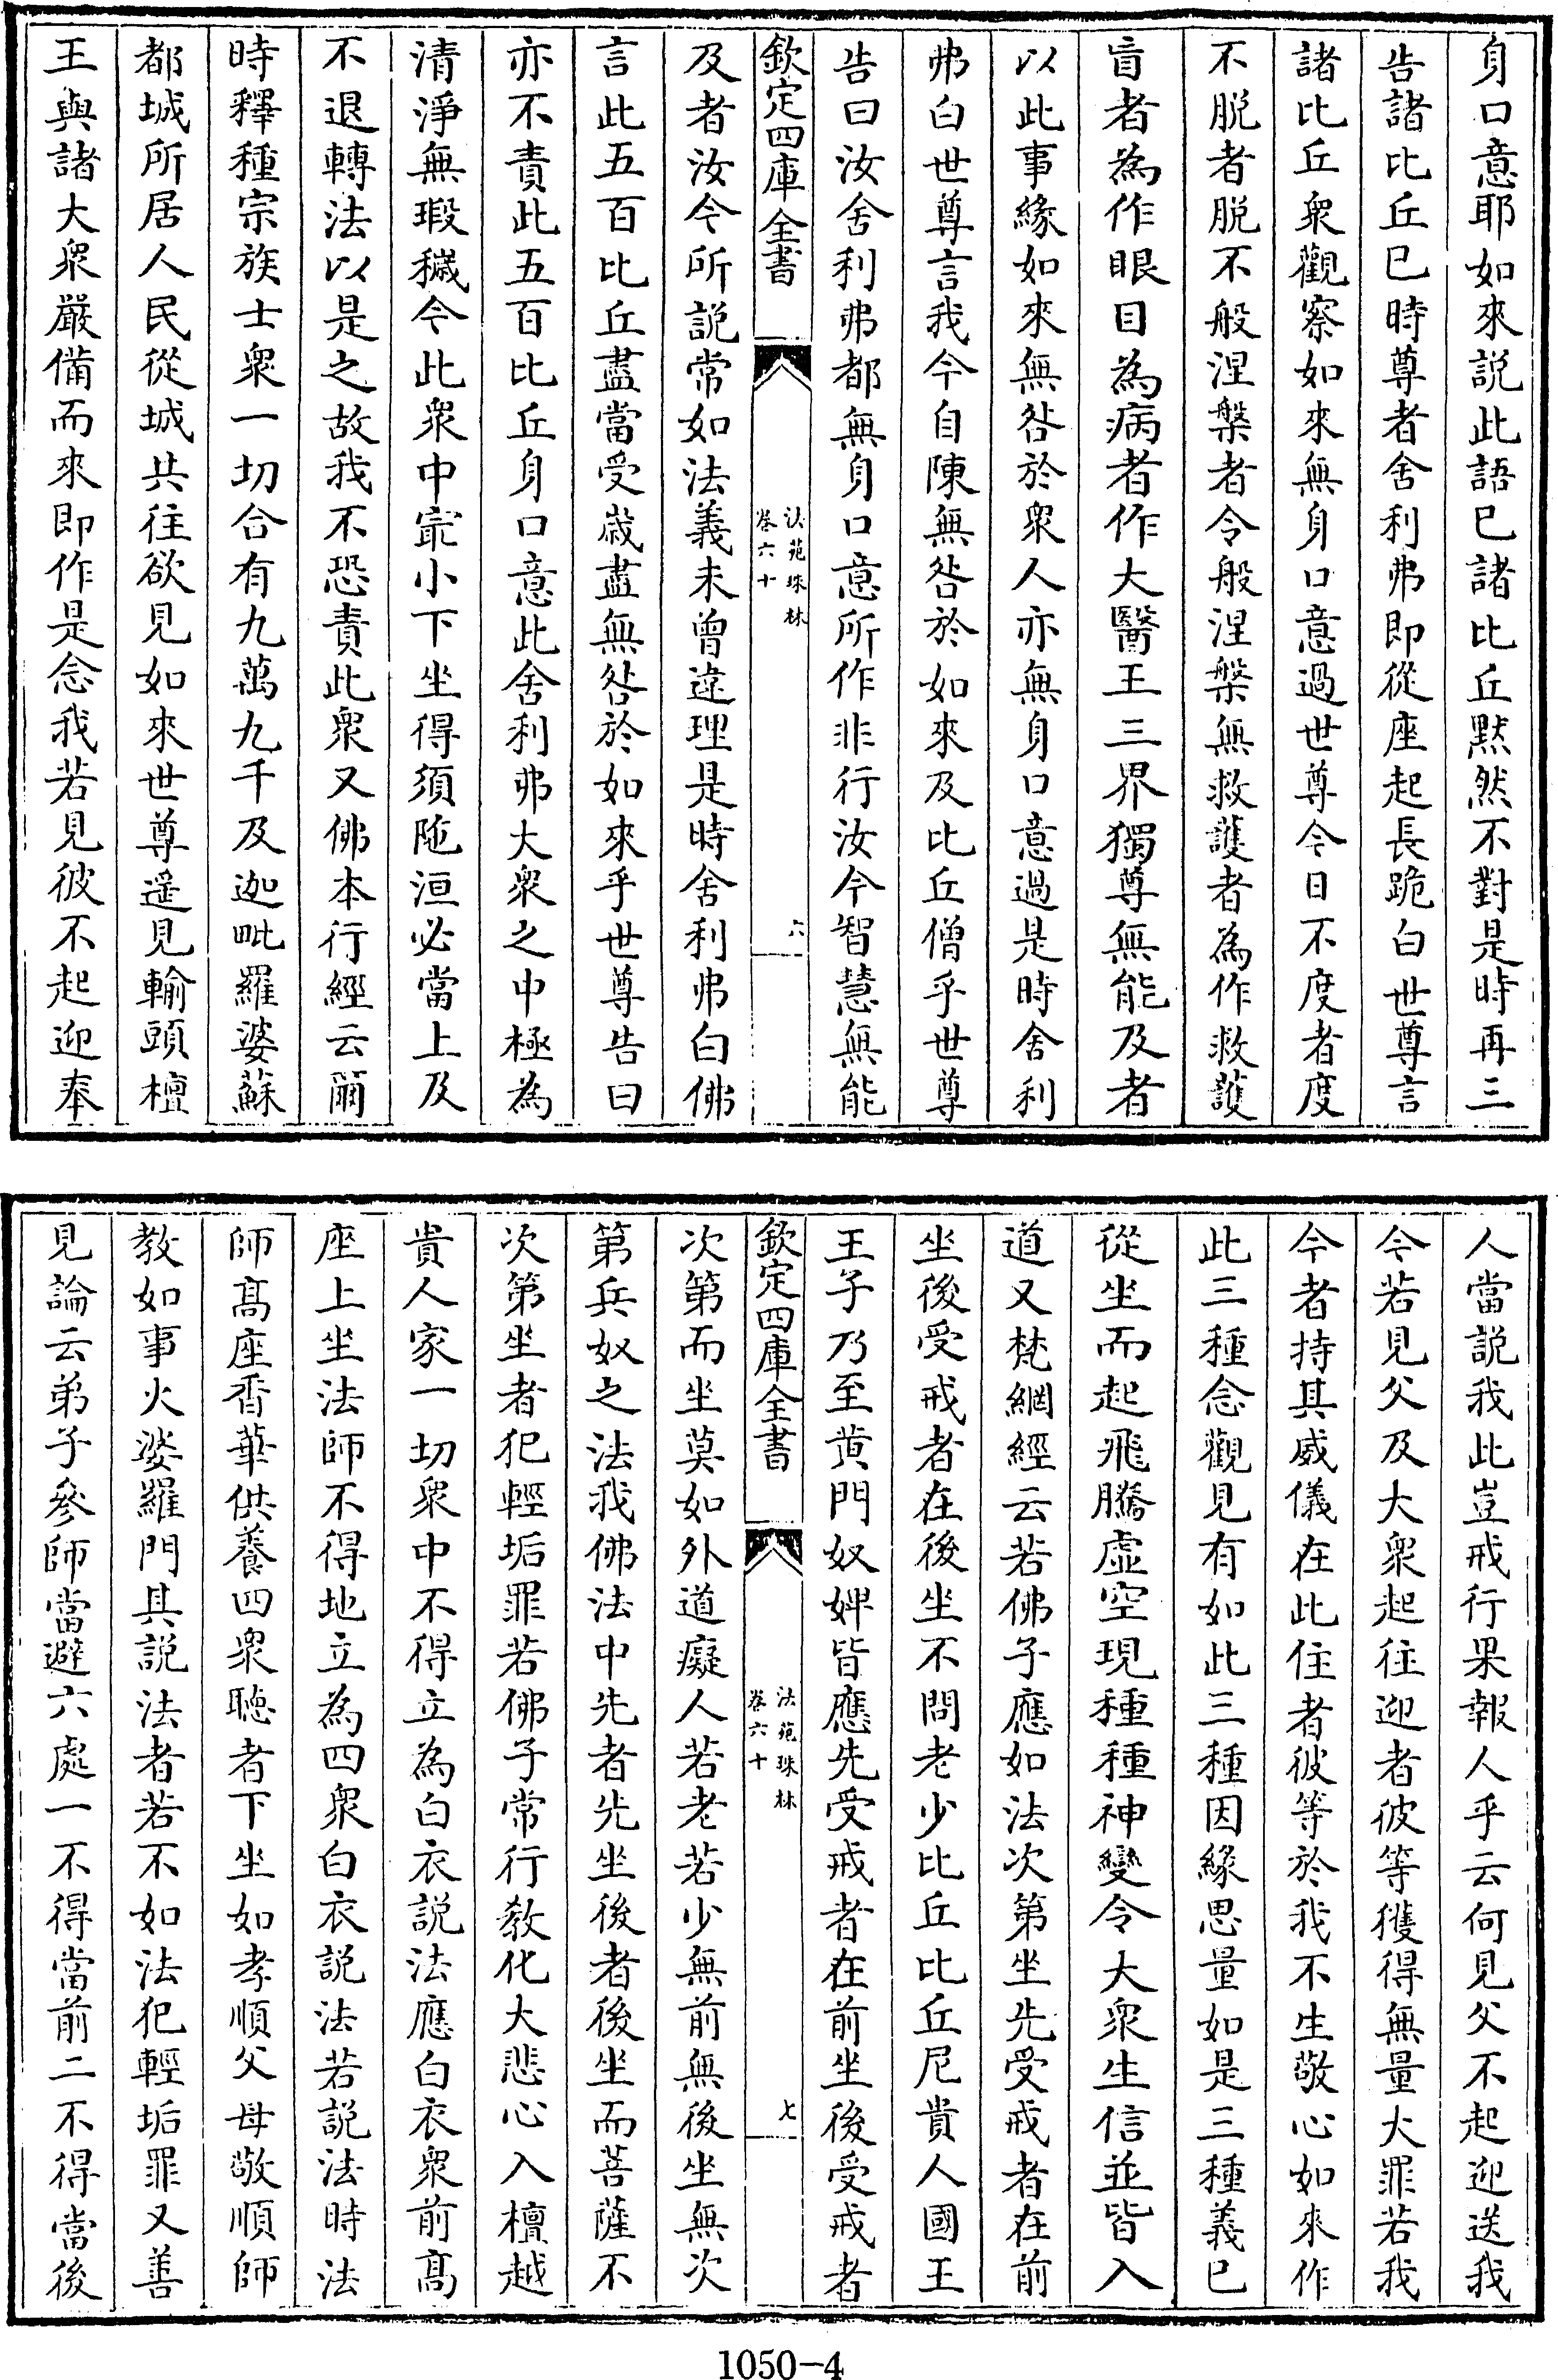 身口意耶如來説此語已諸比丘默然不對是時再三
告諸比丘已時尊者舍利弗即從座起長跪白世尊言
諸比丘衆觀察如來無身口意過世尊今日不度者度
不脱者脱不般涅槃者令般涅槃無救護者為作救護
盲者為作眼目為病者作大醫王三界獨尊無能及者
以此事緣如來無咎於衆人亦無身口意過是時舍利
弗白世尊言我今自陳無咎於如來及比丘僧乎世尊
告曰汝舍利弗都無身口意所作非行汝今智慧無能
欽定四庫全書
法苑珠林
卷六十
六
及者汝今所説常如法義未曾違理是時舍利弗白佛
言此五百比丘盡當受歲盡無咎於如來乎世尊告曰
亦不責此五百比丘身口意此舍利弗大衆之中極為
清淨無瑕穢今此衆中冣小下坐得須陁洹必當上及
不退轉法以是之故我不恐責此衆又佛本行經云爾
時釋種宗族士衆一切合有九萬九千及迦毗羅婆蘇
都城所居人民從城共往欲見如來世尊遥見輸頭檀
王與諸大衆嚴備而來即作是念我若見彼不起迎奉
人當説我此豈戒行果報人乎云何見父不起迎送我
今若見父及大衆起往迎者彼等獲得無量大罪若我
今者持其威儀在此住者彼等於我不生敬心如來作
此三種念觀見有如此三種因緣思量如是三種義已
從坐而起飛騰虛空現種種神變令大衆生信並皆入
道又梵網經云若佛子應如法次第坐先受戒者在前
坐後受戒者在後坐不問老少比丘比丘尼貴人國王
王子乃至黄門奴婢皆應先受戒者在前坐後受戒者
欽定四庫全書
法苑珠林
卷六十
七
次第而坐莫如外道癡人若老若少無前無後坐無次
第兵奴之法我佛法中先者先坐後者後坐而菩薩不
次第坐者犯輕垢罪若佛子常行教化大悲心入檀越
貴人家一切衆中不得立為白衣説法應白衣衆前髙
座上坐法師不得地立為四衆白衣説法若説法時法
師髙座香華供養四衆聽者下坐如孝順父母敬順師
教如事火婆羅門其説法者若不如法犯輕垢罪又善
見論云弟子參師當避六處一不得當前二不得當後
1050-4